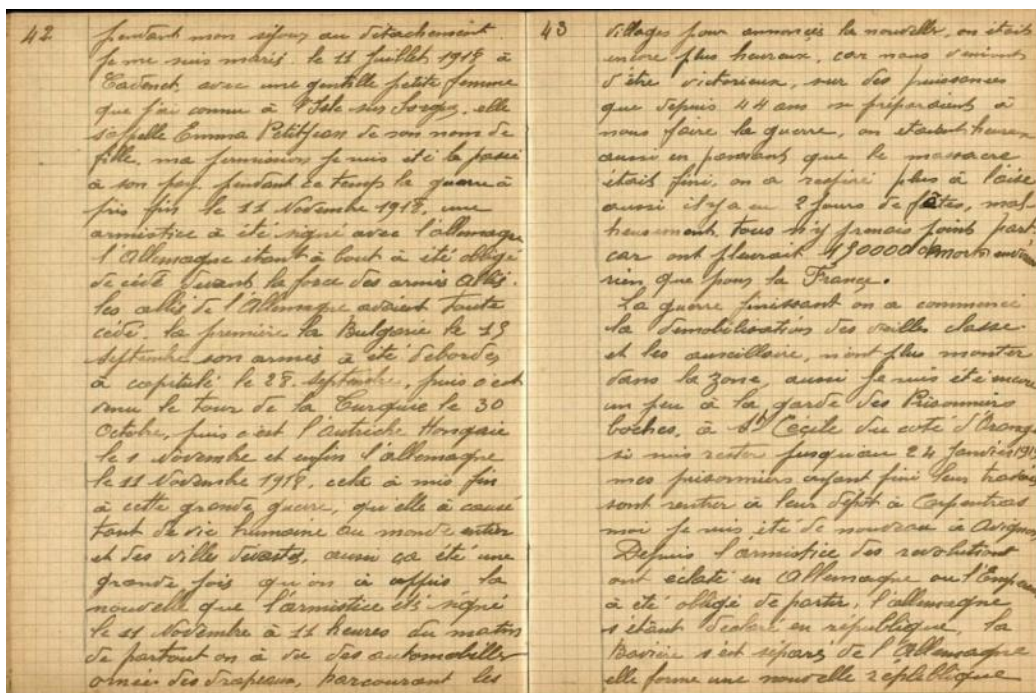 42
pendant mon séjour au détachement
je me suis mariè. le 11 Juillet 1918 à
Cadenet, avec une gentille petite femme
que j'ai connu à l'Isle sur Sorgue. elle
s'appelle Emma Petitjean de son nom de
fille. ma permission je suis été la passé
à son pay. pendant ce temps la guerre à
pris fin le 11 Novembre 1918. une
armistice à été signé avec l'allemagne
l'Allemagne etant à bout à été obligé
de cédé devant la force des armés Alliés.
les alliés de l'Allemagne avaient toute
cédé. la première la Bulgarie le
septembre son armés à été debordes
à capitulé le 28 septembre, puis c'est
venu le tour de la Turquie le 30
Octobre, puis c'est l'autriche Hongrie
le 1 Novembre et enfin l'allemagne
le 11 Novembre 1918. celà à mis fin
à cette grande guerre, qu'elle à causé
tant de vie humaine au monde entier
et des ville devastés. aussi ça été une
grande fois qu'on à appis la
nouvelle que l'armistice été signé
le 11 Novembre à 11 heures du matin
de partout on à vu des automobilles
ornées des drapeaux, parcourant les
43
villages pour annoncés la nouvelle, on etait
encore plus heureux, car nous venions
d'être victorieux, sur des puissances
que depuis 44 ans se préparaient à
nous faire la guerre, on etaient heureux
aussi en pensant que le massacre
était fini, on a respiré plus à l'aise
aussi il y a eu 2 jours de fêtes, mal-
heusement tous n'y prenais point part
car ont pleurait morts environ
rien que pour la France.
La guerre finissant on a commencé
la démobilisation des vieilles classe
et les auxillaire, n'ont plus monter
dans la zone, aussi je suis été encore
un peu à la garde des Prisonniers
boches, à Ste Cécile du coté d'Orange
si suis rester jusqu'au 24 Janvier 1919
mes prisonniers ayant fini leur travail
sont rentrer à leur dépôt à Carpentras
moi je suis été de nouveau à Avignon
Depuis l'armistice des revolutions
ont éclaté en Allemagne ou l'Empereur
à été obligé de partir, l'allemagne
s'étant declaré en république, la
Bavière s'est séparés de l'Allemagne
elle forme une nouvelle républlique